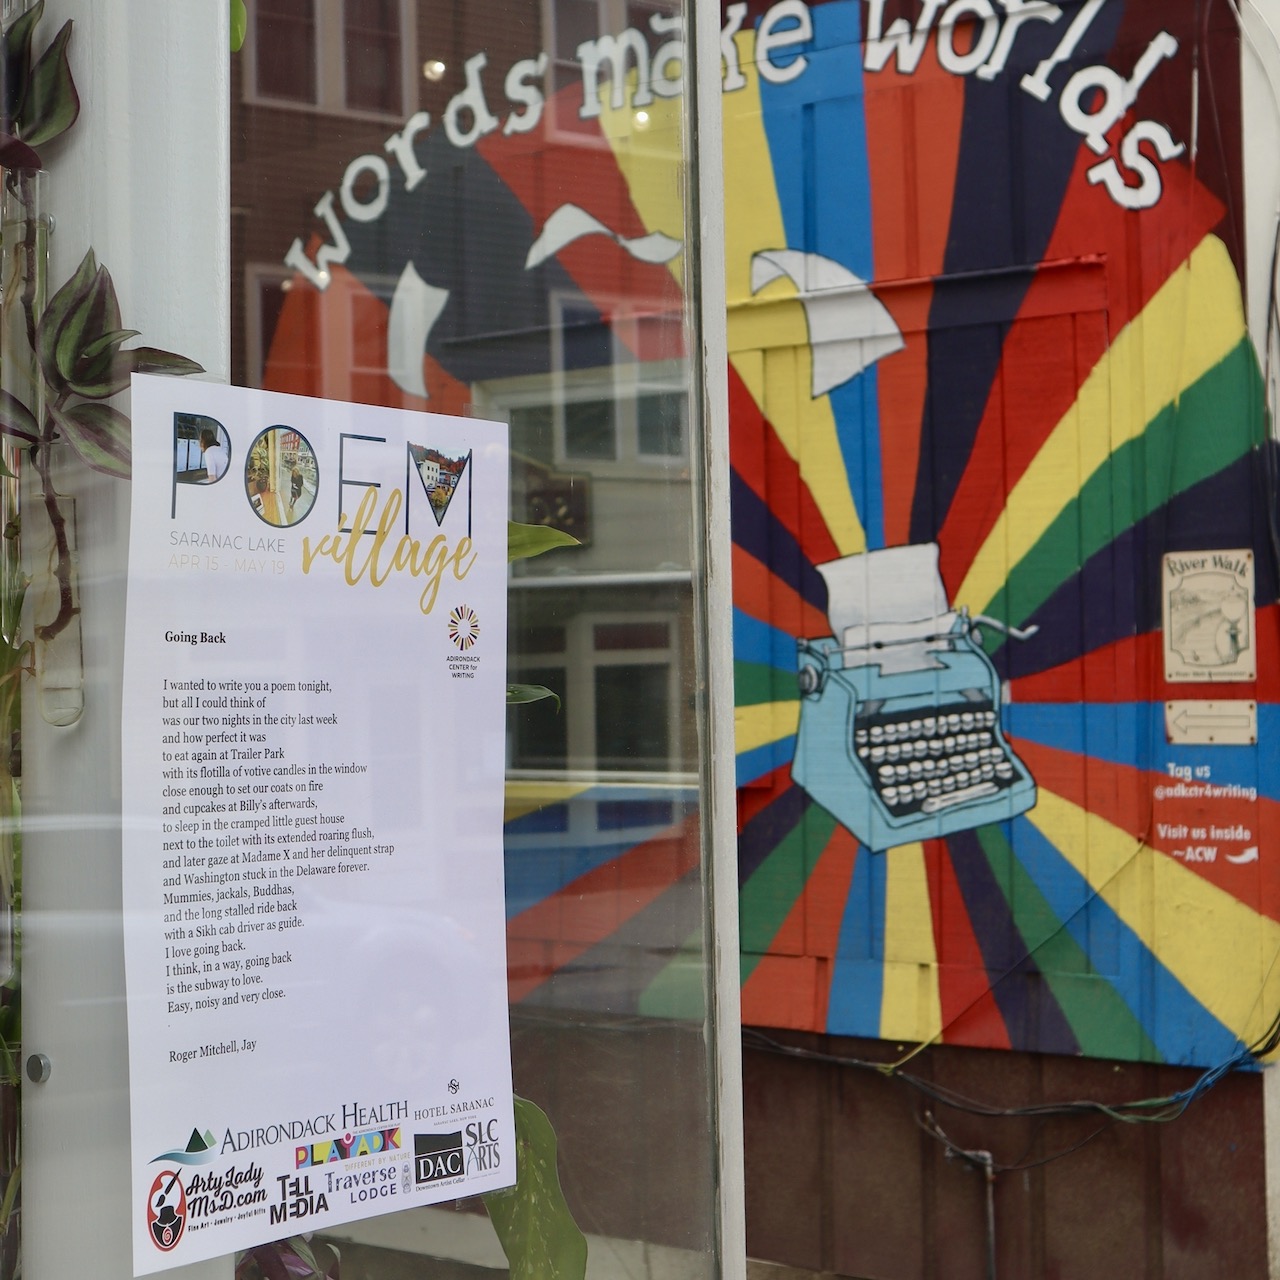 words make worlds
POEM
village
SARANAC LAKE
APR 15 - MAY 19
ADIRONDACK
CENTER for
WRITING
Going Back
I wanted to write you a poem tonight,
but all I could think of
was our two nights in the city last week
and how perfect it was
to eat again at Trailer Park
with its flotilla of votive candles in the window
close enough to set our coats on fire
and cupcakes at Billy's afterwards,
to sleep in the cramped little guest house
next to the toilet with its extended roaring flush,
and later gaze at Madame X and her delinquent strap
and Washington stuck in the Delaware forever.
Mummies, jackals, Buddhas,
and the long stalled ride back
with a Sikh cab driver as guide.
I love going back.
I think, in a way, going back
is the subway to love.
Easy, noisy and very close.
.
Roger Mitchell, Jay
ADIRONDACK HEALTH
HOTEL SARANAC
PLAYADK
DIFFERENT BY NATURE
ArtyLady
MsD.com
Fine Art • Jewelry • Joyful Gifts
TELL
MEDIA
Traverse
LODGE
DAC
Downtown Artist Cellar
SLC
ARTS
River Walk
Tag us
@adkctr4writing
Visit us inside
~ACW